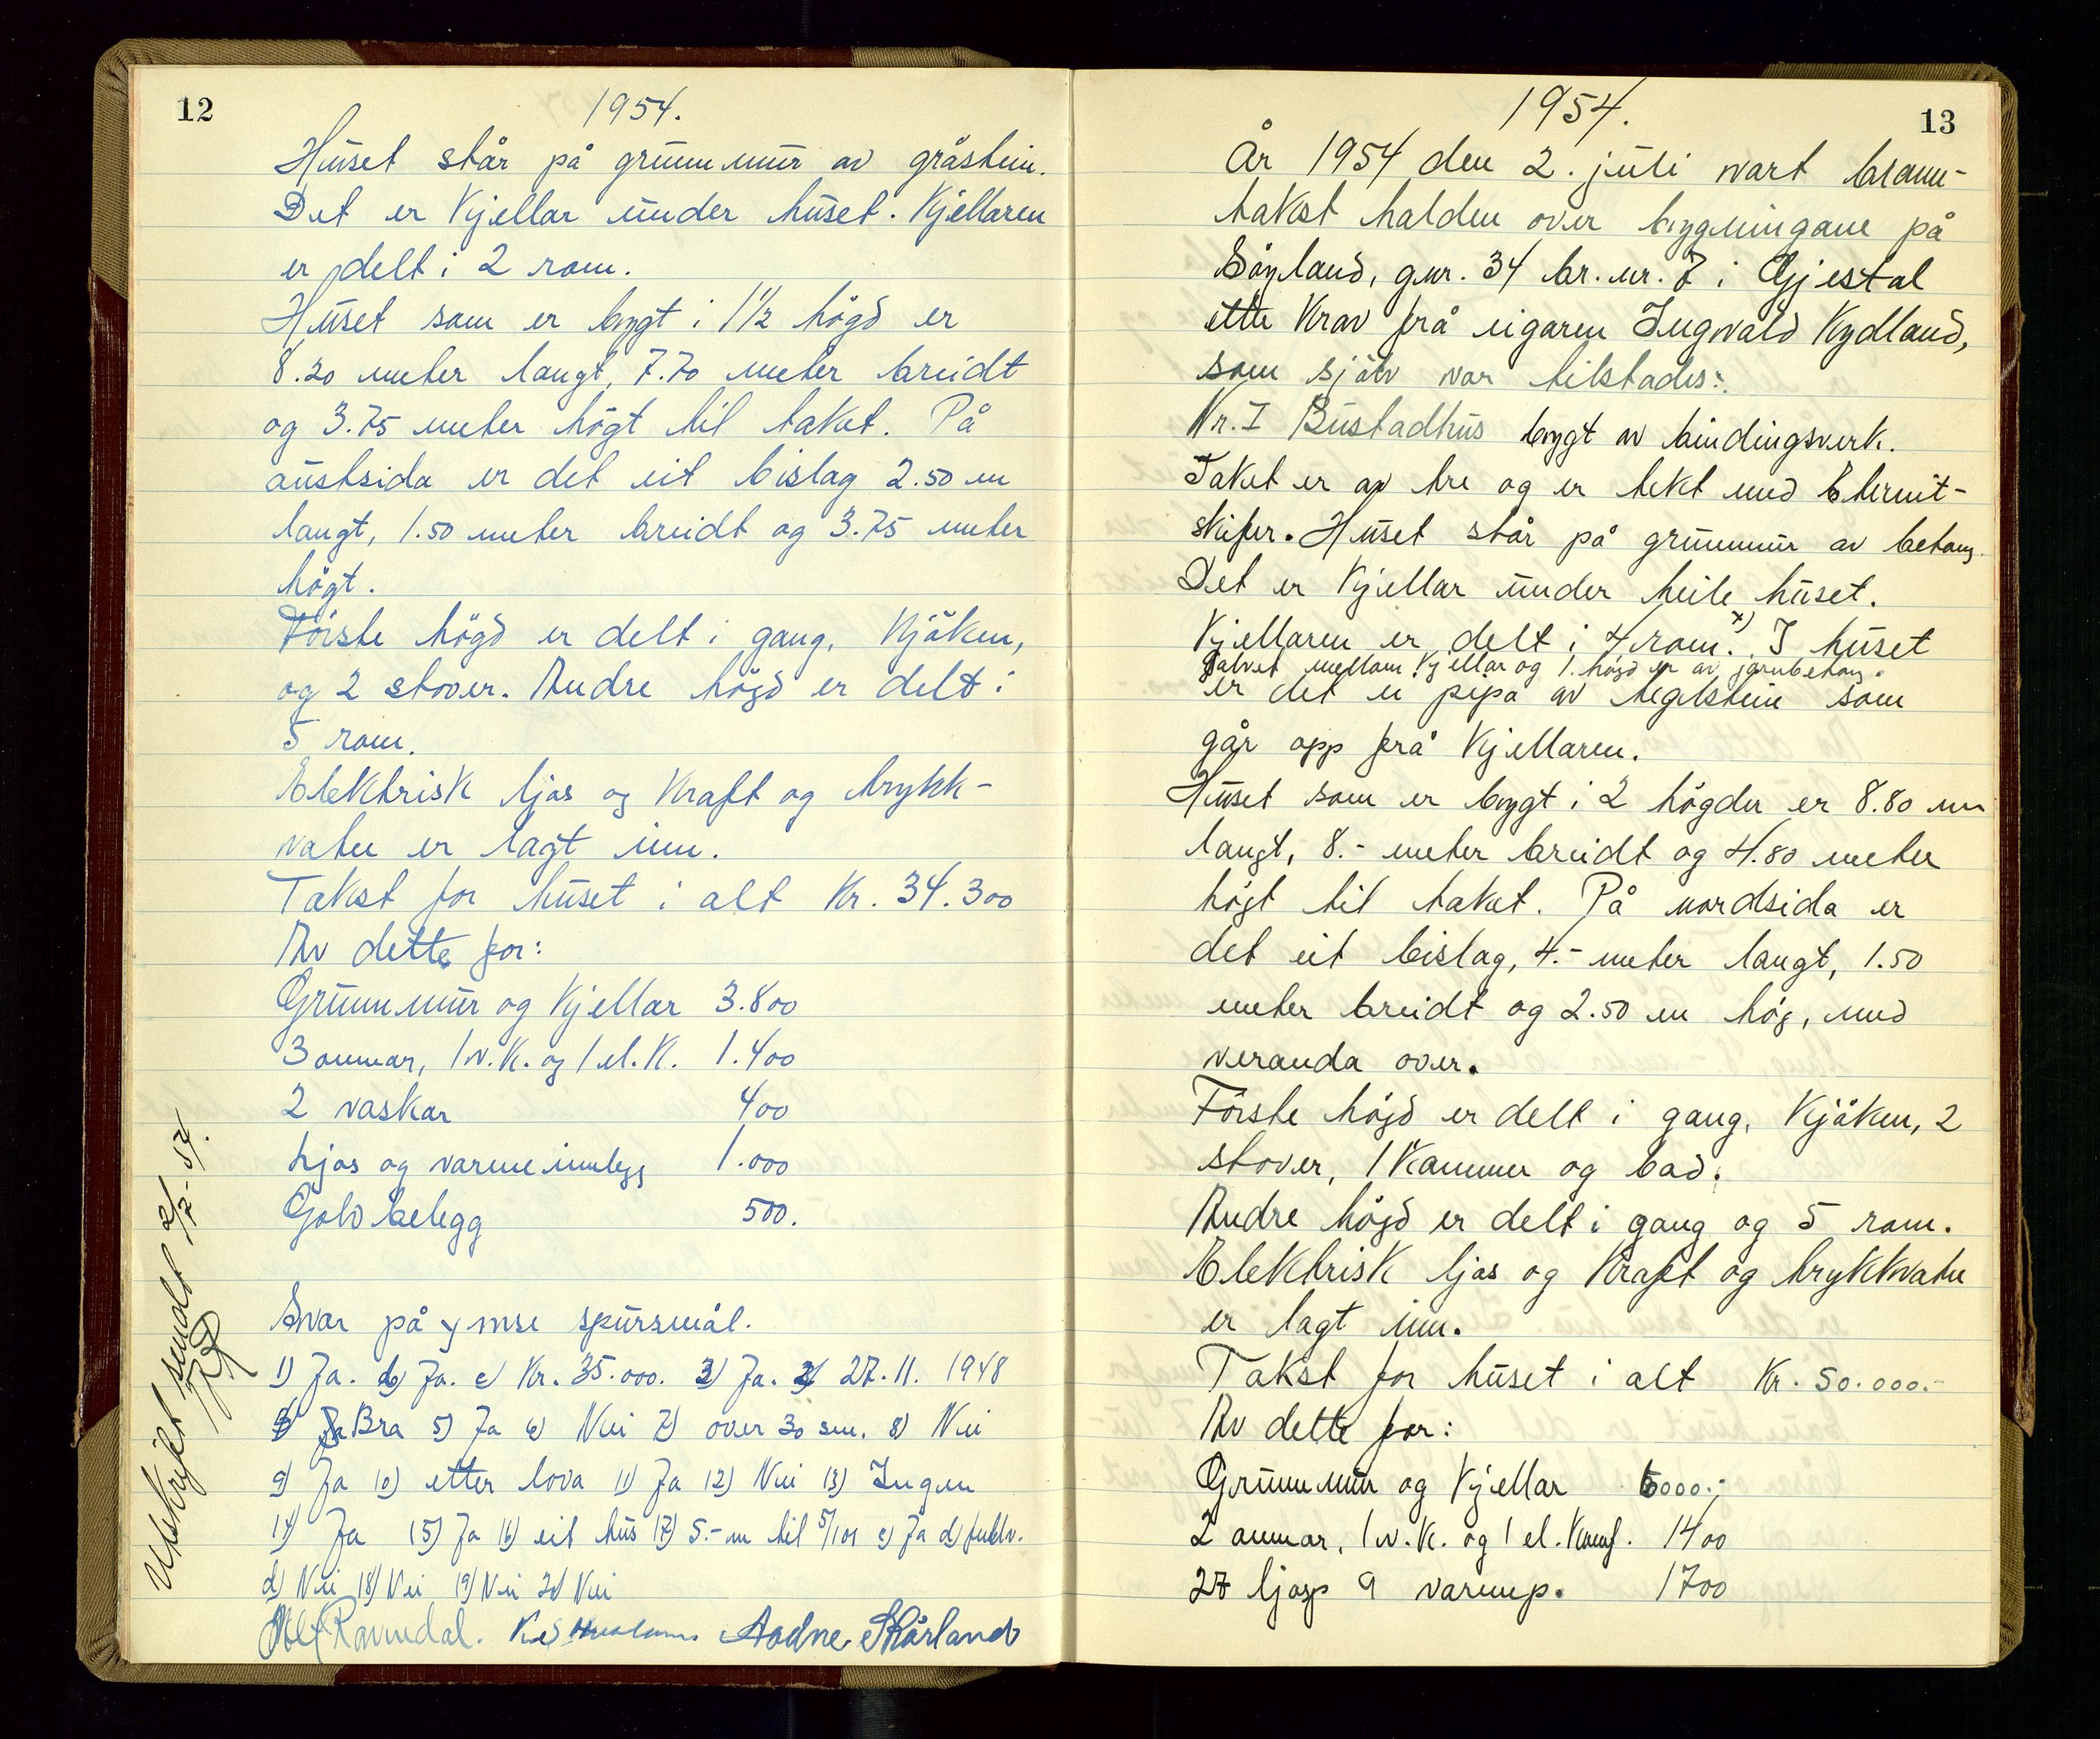 12
1954.
Huset står på grunnmur av gråstein.
Det er kjellar under huset. Kjellaren
er delt i 2 rom.
Huset som er bygt i 1½ högd er
8.20 meter langt, 7.70 meter breidt
og 3.75 meter högt til taket. På
austsida er det eit bislag 2.50 m
langt, 1.50 meter breidt og 3.75 meter
högt.
Förste högd er delt i gang, kjöken,
og 2 stover. Andre högd er delt i
5 rom.
Elektrisk ljos og kraft og trykk-
vatn er lagt inn.
Takst for huset i alt kr. 34.300
Av dette for:
Grunnmur og kjellar 3.800
3 omnar, 1 v.k. og 1 el.k. 1.400
2 vaskar 400
Ljos og varme innlegg 1.000
Golvbelegg 500.
Svar på ymse spursmål.
1) Ja. b) Ja. c) Kr. 35.000. 2) Ja. 3) 27.11. 1948
4) Bra 5) Ja 6) Nei 7) over 30 sm. 8) Nei
9) Ja 10) etter lova 11) Ja 12) Nei 13) Ingen
14) Ja 15) Ja 16) eit hus 17) 5.- m til 5/101 c) Ja d)
d) Nei 18) Nei 19) Nei 20) Nei
Alf Ravndal. Aadne Skårland
Utskrift sendt 2/7-54.
13
1954.
År 1954 den 2. juli vart brann-
takst halden over bygningane på
Söyland, gnr. 34 br.nr. 7 i Gjestal
etter krav frå eigaren Ingvald Kydland,
som sjölv var tilstades:
Nr. I Bustadhus bygt av bindingsverk.
Taket er av tre og er tekt med Eternit-
skifer. Huset står på grunnmur av betong.
Det er kjellar under heile huset.
Kjellaren er delt i 4 rom. x) I huset
Golvet mellom kjellar og 1. högd er av jarnbetong.
er det ei pipa av teglstein som
går opp frå kjellaren.
Huset som er bygt i 2 högder er 8.80 m
langt, 8.- meter breidt og 4.80 meter
högt til taket. På nordsida er
det eit bislag, 4.- meter langt, 1.50
meter breidt og 2.50 m hög, med
veranda over.
Förste högd er delt i gang, kjöken, 2
stover, 1 kammer og bad.
Andre högd er delt i gang og 5 rom.
Elektrisk ljos og kraft og trykkvatn
er lagt inn.
Takst for huset i alt kr. 50.000.-
Av dette for:
Grunnmur og kjellar 6000.-
2 omnar, 1 v.k. og 1 el. komf. 1400
27 ljosp 9 varmep. 1700